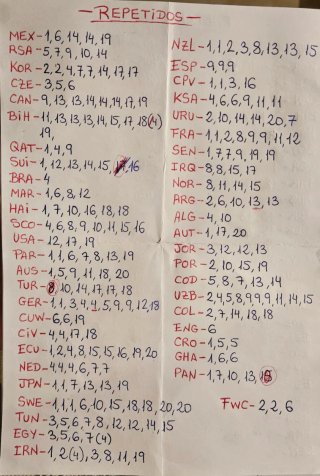 - REPETIDOS -
MEX - 1, 6, 14, 14, 19
RSA - 5, 7, 9, 10, 14
KOR - 2, 2, 4, 7, 7, 14, 17, 17
CZE - 3, 5, 6
CAN - 9, 13, 13, 14, 14, 14, 17, 19
BiH - 11, 13, 13, 13, 14, 15, 17, 18(4)
19,
QAT - 1, 4, 9
SUi - 1, 12, 13, 14, 15, 16
BRA - 4
MAR - 1, 6, 8, 12
HAi - 1, 7, 10, 16, 18, 18
SCO - 4, 6, 8, 9, 10, 11, 15, 16
USA - 12, 17, 19
PAR - 1, 1, 6, 7, 8, 13, 19
AUS - 1, 5, 9, 11, 18, 20
TUR - 8, 10, 14, 17, 17, 18
GER - 1, 1, 3, 4, 1, 5, 9, 9, 12, 18
CUW - 6, 6, 19
CiV - 4, 4, 17, 18
ECU - 1, 2, 4, 8, 15, 15, 16, 19, 20
NED - 4, 4, 4, 6, 7, 7
JPN - 1, 1, 7, 13, 13, 19
SWE - 1, 1, 1, 6, 10, 15, 18, 18, 20, 20
TUN - 3, 5, 6, 7, 8, 12, 12, 14, 15
EGY - 3, 5, 6, 7(4)
IRN - 1, 2(4), 3, 8, 11, 19
NZL - 1, 1, 2, 3, 8, 13, 13, 15
ESP - 9, 9, 9
CPV - 1, 1, 3, 16
KSA - 4, 6, 6, 9, 11, 11
URU - 2, 10, 14, 14, 20, 7
FRA - 1, 1, 2, 8, 9, 9, 11, 12
SEN - 1, 7, 7, 9, 19, 19
IRQ - 8, 8, 15, 17
NOR - 8, 11, 14, 15
ARG - 2, 6, 10, 13, 13
ALG - 4, 10
AUT - 1, 17, 20
JOR - 3, 12, 12, 13
POR - 2, 10, 15, 19
COD - 5, 8, 7, 13, 14
UZB - 2, 4, 5, 8, 9, 9, 9, 11, 14, 15
COL - 2, 7, 14, 18, 18
ENG - 6
CRO - 1, 5, 5
GHA - 1, 6, 6
PAN - 1, 7, 10, 13,
FWC - 2, 2, 6